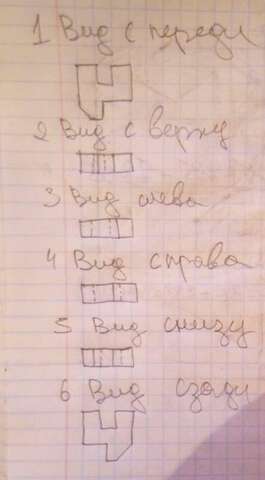 1 Вид с переди
2 Вид с верху
3 Вид слева
4 Вид справа
5 Вид снизу
6 Вид сзади